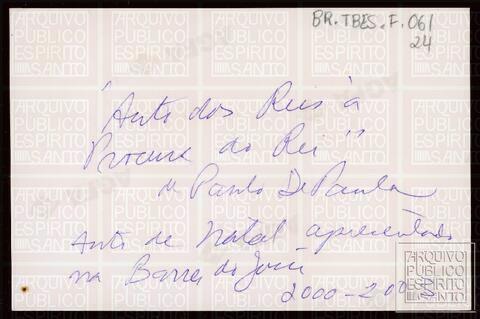 BR.TBES.F.061
24
"Auto dos Reis à
Procura do Rei"
de Paulo DePaula
Auto de Natal apresentado
na Barra do Jucu
2000-200
ARQUIVO
PÚBLICO
ESPÍRITO
SANTO